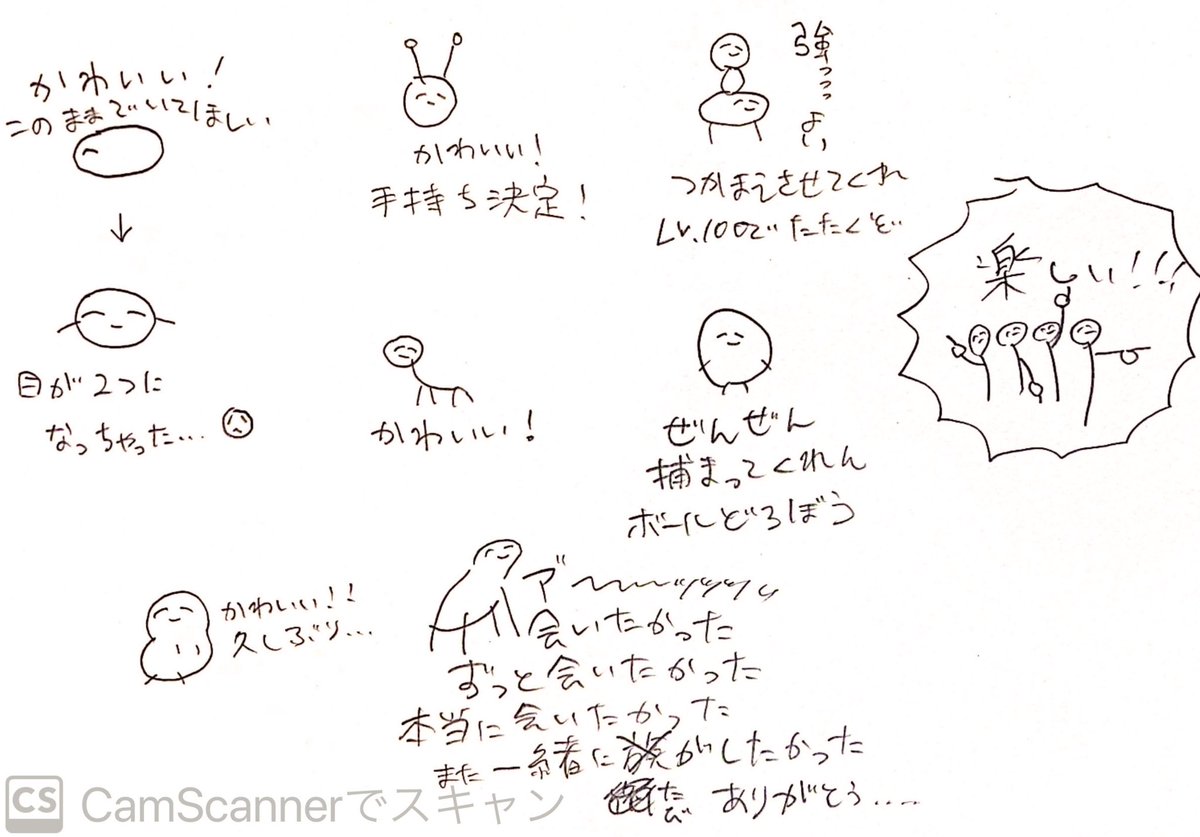 かわいい!
このままでいてほしい
目が2つに
なっちゃった…
かわいい!
手持ち決定!
かわいい!
強っっっ
よい
つかまえさせてくれ
Lv.100でたたくぞ
ぜんぜん
捕まってくれん
ボールどろぼう
楽しい!!!
かわいい!!
久しぶり…
ア゛〜〜〜ッッッッ
会いたかった
ずっと会いたかった
本当に会いたかった
また一緒に がしたかった
たび
ありがとう……
CS CamScannerでスキャン